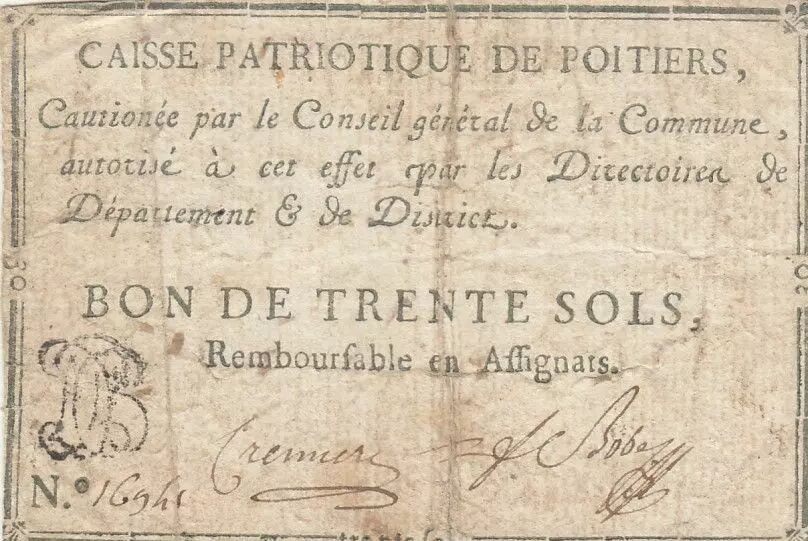 CAISSE PATRIOTIQUE DE POITIERS,
Cautionée par le Conseil général de la Commune,
autorisé à cet effet par les Directoires de
Département & de District.
30
BON DE TRENTE SOLS,
Remboursable en Assignats.
N.º